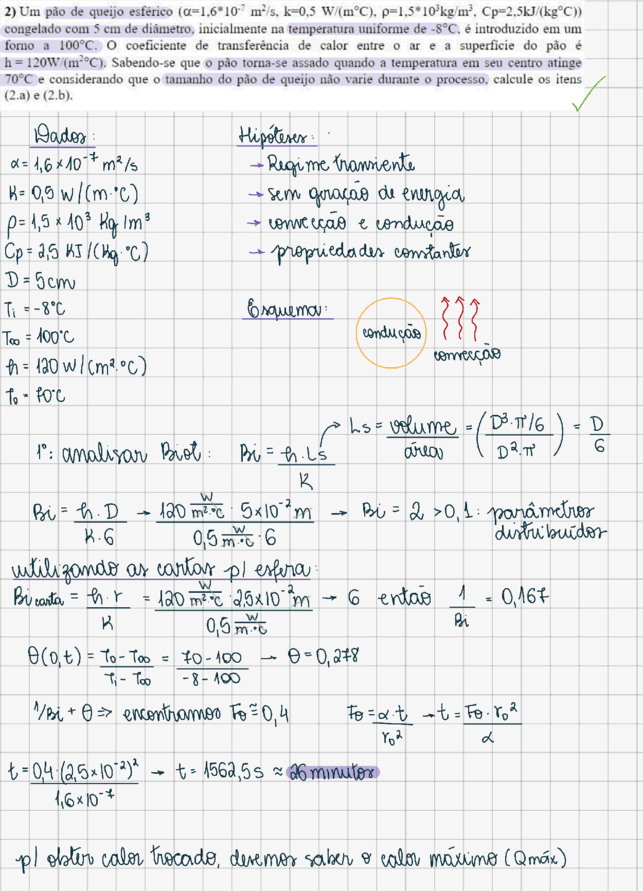 2) Um pão de queijo esférico (α=1,6*10⁻⁷ m²/s, k=0,5 W/(m°C), ρ=1,5*10³kg/m³, Cp=2,5kJ/(kg°C))
congelado com 5 cm de diâmetro, inicialmente na temperatura uniforme de -8°C, é introduzido em um
forno a 100°C. O coeficiente de transferência de calor entre o ar e a superfície do pão é
h = 120W/(m²°C). Sabendo-se que o pão torna-se assado quando a temperatura em seu centro atinge
70°C e considerando que o tamanho do pão de queijo não varie durante o processo, calcule os itens
(2.a) e (2.b).
Dados:
α = 1,6 × 10⁻⁷ m²/s
K = 0,5 W/(m·°C)
ρ = 1,5 × 10³ Kg/m³
Cp = 2,5 KJ/(Kg·°C)
D = 5cm
Ti = -8°C
T∞ = 100°C
h = 120 W/(m²·°C)
T₀ = 70°C
Hipóteses:
→ Regime transiente
→ sem geração de energia
→ convecção e condução
→ propriedades constantes
Esquema:
condução
convecção
1º: analisar Biot: Bi = h·Ls / K → Ls = volume / área = (D³·π/6 / D²·π) = D / 6
Bi = h·D / K·6 → 120 W/m²·°C · 5×10⁻² m / 0,5 W/m·°C · 6 → Bi = 2 > 0,1: parâmetros
distribuídos
utilizando as cartas p/ esfera:
Bi carta = h·r / K = 120 W/m²·°C · 2,5×10⁻² m / 0,5 W/m·°C → 6 então 1/Bi = 0,167
θ(0,t) = T₀ - T∞ / Ti - T∞ = 70 - 100 / -8 - 100 → θ = 0,278
1/Bi + θ ⇒ encontramos Fo ≅ 0,4 Fo = α·t / r₀² → t = Fo·r₀² / α
t = 0,4·(2,5×10⁻²)² / 1,6×10⁻⁷ → t = 1562,5 s ≈ 26 minutos
p/ obter calor trocado, devemos saber o calor máximo (Qmáx)